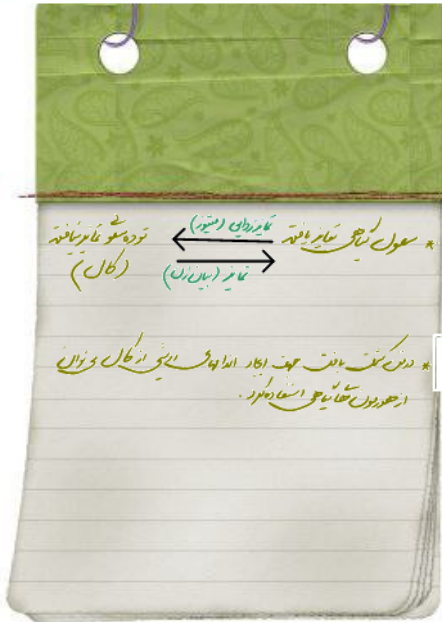 * سلول گیاهی تمایز یافته
تمایززدایی (میتوز)
تمایز (بیان ژن)
توده سلولی تمایز نیافته
(کال)
* در فن کشت بافت جهت ایجاد اندام‌های رویشی از کال می‌توان
از هورمون‌های گیاهی استفاده کرد.